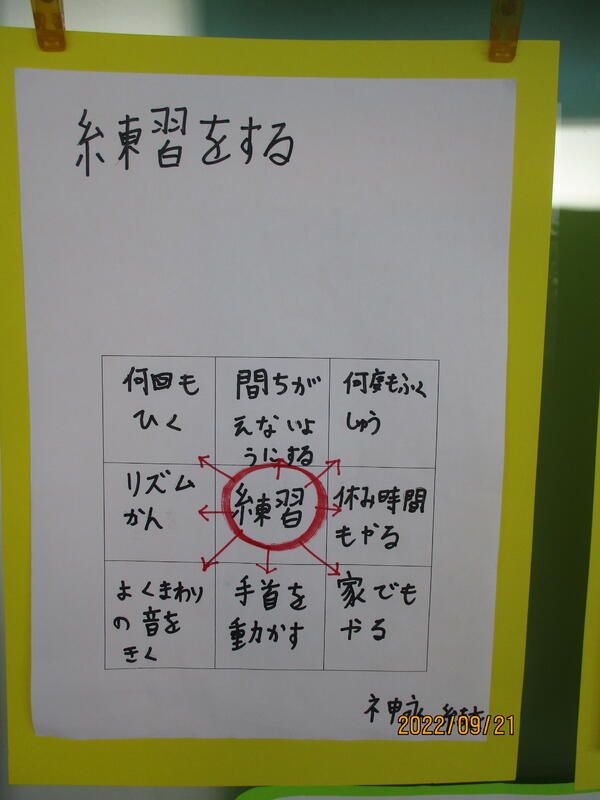 練習をする
何回も
ひく
間ちが
えないよ
うにする
何度もふく
しゅう
リズム
かん
練習
休み時間
もやる
よくまわり
の音を
きく
手首を
動かす
家でも
やる
神永
2022/09/21